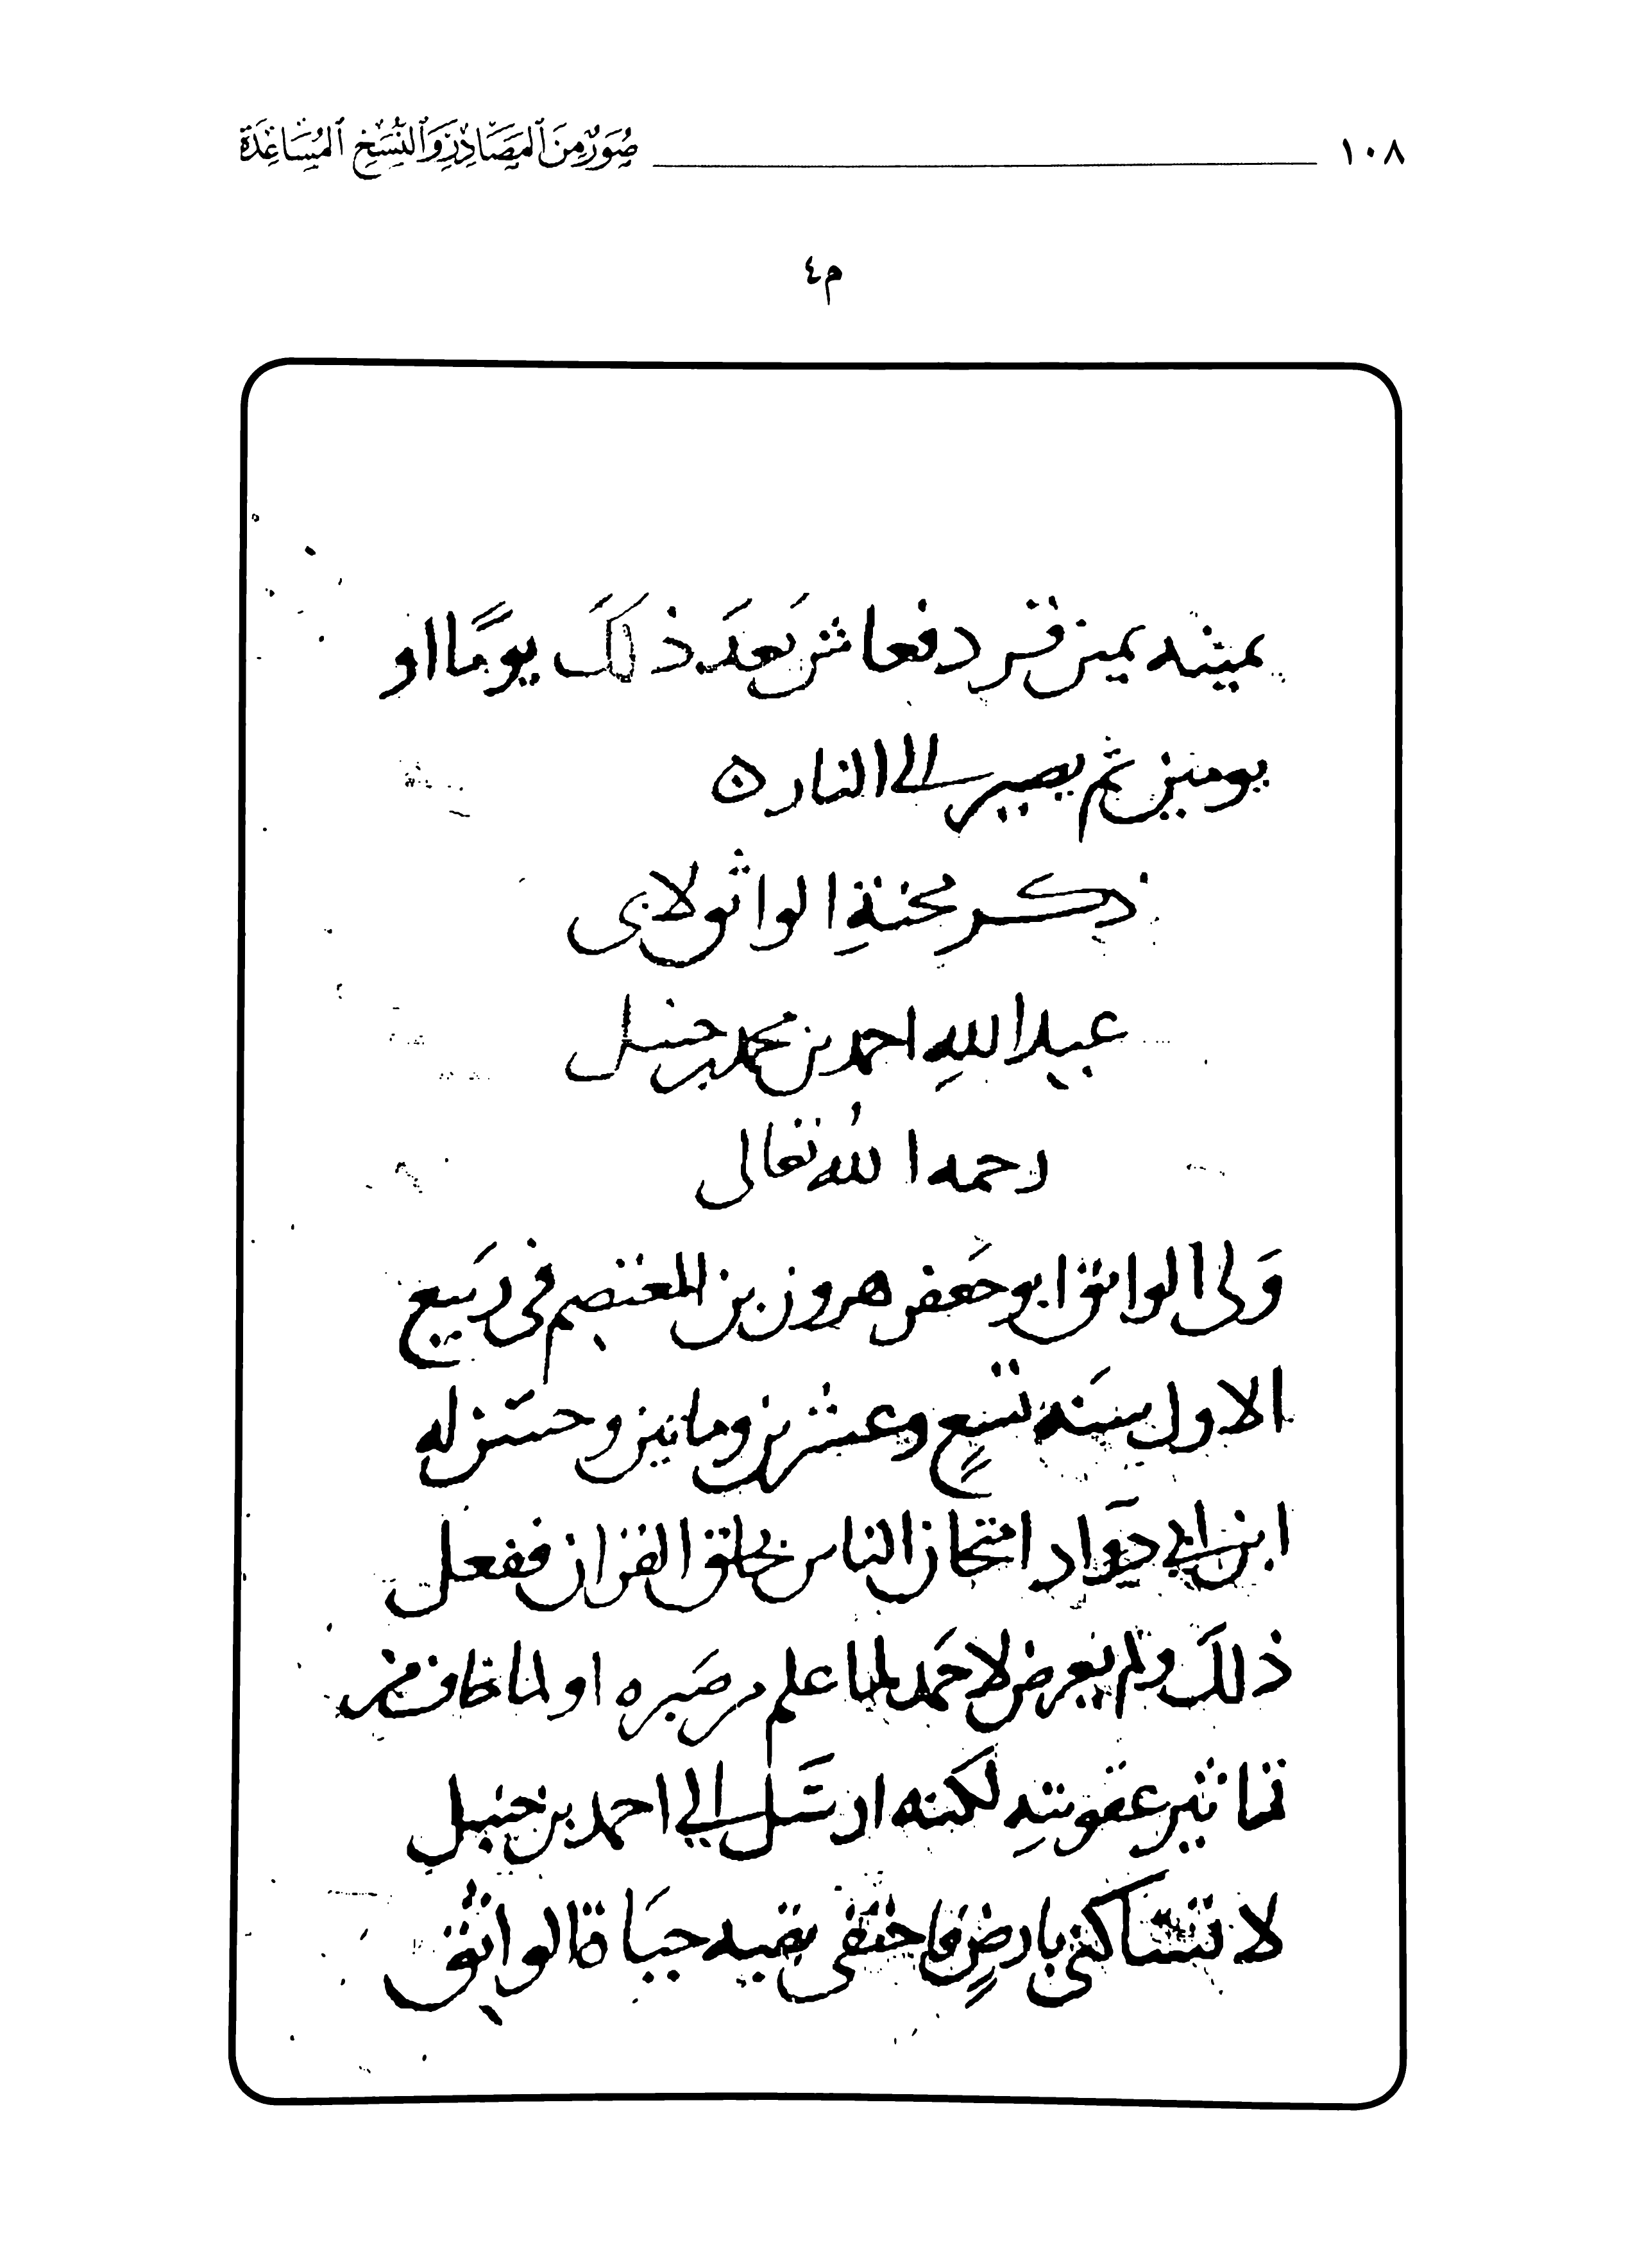 ١٠٨ صُوَرٌ مِنَ ٱلمَصَادِرِ وَٱلنُّسَخِ ٱلمُسَاعِدَة
م٤
يمينه يمين دفعا بَعدَ ذلكَ يومًا او
يومين ثم يصير الى النار ه
ذكر محنةِ الواثق لابى
عبد اللهِ احمد بن محمد بن حنبل
رحمه اللهُ تعالى
وَلى الواثق ابو جَعفر هرون بن المعتصم فى رَبيع
الاول سَنه تسعٍ وعشرين وماتين وحسّن له
ابن ابي دوَاد امتحان الناس بخلق القران ففعل
ذلكَ ولم يعرض لاحمَد لما علم من صَبره او لما خاف من
تاثير عقوبتهِ لكنه ارسَل الي احمد بن حنبل
لا تسَاكنى بارضٍ فاختفى بقيه حيَاة الواثق